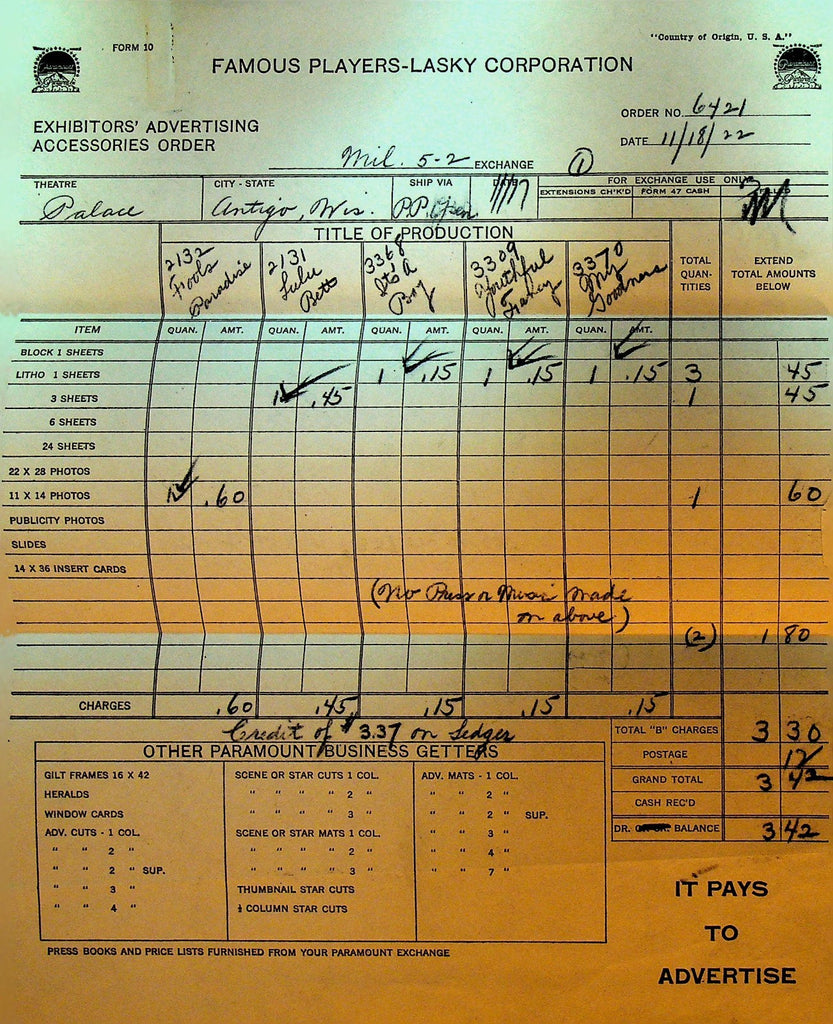 FORM 10
"Country of Origin, U. S. A."
FAMOUS PLAYERS-LASKY CORPORATION
ORDER NO. 6421
EXHIBITORS' ADVERTISING
ACCESSORIES ORDER
DATE 11/18/22
Mil. 5-2 EXCHANGE
1
THEATRE CITY - STATE SHIP VIA DATE FOR EXCHANGE USE ONLY
EXTENSIONS CH'K'D FORM 47 CASH
Palace Antigo, Wis. P.P. 11/17
TITLE OF PRODUCTION
2132 Fools Paradise
2131 Lulu Bett
3368 It's A Boy
3309 Youthful
3370 My Goodness
TOTAL QUAN-TITIES
EXTEND TOTAL AMOUNTS BELOW
ITEM QUAN. AMT. QUAN. AMT. QUAN. AMT. QUAN. AMT. QUAN. AMT.
BLOCK 1 SHEETS
LITHO 1 SHEETS 1 .15 1 .15 1 .15 3 45
3 SHEETS 1 .45 1 45
6 SHEETS
24 SHEETS
22 X 28 PHOTOS
11 X 14 PHOTOS 1 .60 1 60
PUBLICITY PHOTOS
SLIDES
14 X 36 INSERT CARDS
(No Press or Music made
on above)
(2) 1 80
CHARGES .60 .45 .15 .15 .15
Credit of $3.37 on Ledger
TOTAL "B" CHARGES 3 30
POSTAGE 12
GRAND TOTAL 3 42
CASH REC'D
DR. BALANCE 3 42
OTHER PARAMOUNT BUSINESS GETTERS
GILT FRAMES 16 X 42 SCENE OR STAR CUTS 1 COL. ADV. MATS - 1 COL.
HERALDS " " " " 2 " " " 2 "
WINDOW CARDS " " " " 3 " " " 2 " SUP.
ADV. CUTS - 1 COL. SCENE OR STAR MATS 1 COL. " " 3 "
" " 2 " " " " " 2 " " " 4 "
" " 2 " SUP. " " " " 3 " " " 7 "
" " 3 " THUMBNAIL STAR CUTS
" " 4 " ½ COLUMN STAR CUTS
PRESS BOOKS AND PRICE LISTS FURNISHED FROM YOUR PARAMOUNT EXCHANGE
IT PAYS
TO
ADVERTISE